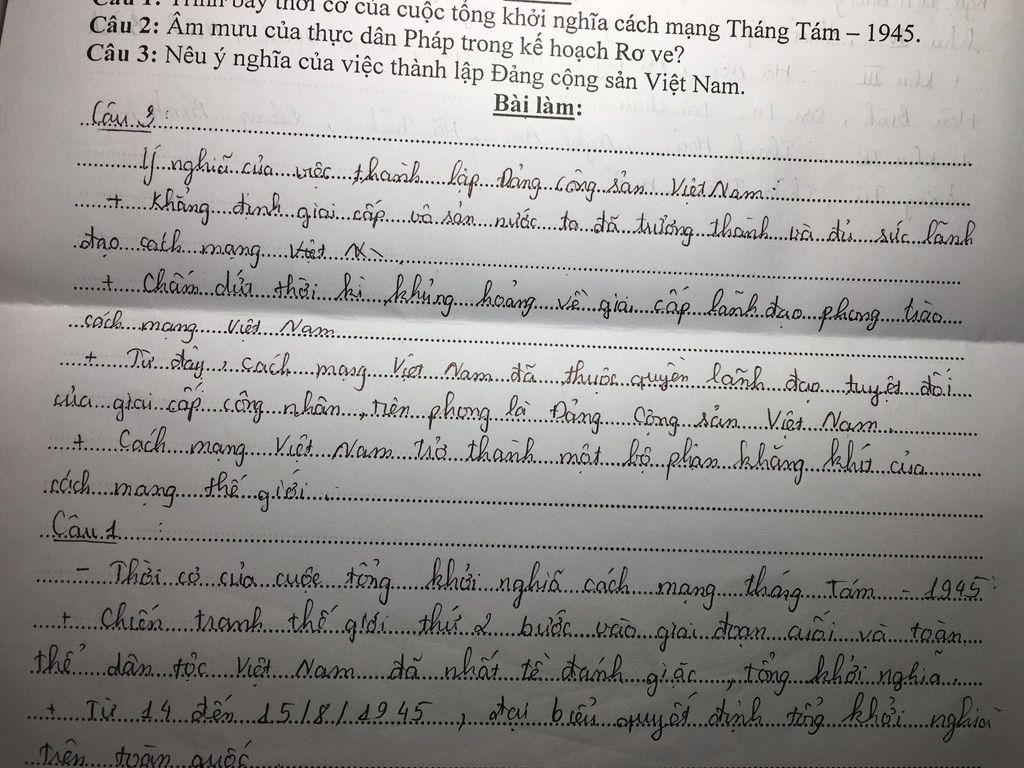 Câu 1: Trình bày thời cơ của cuộc tổng khởi nghĩa cách mạng Tháng Tám – 1945.
Câu 2: Âm mưu của thực dân Pháp trong kế hoạch Rơ ve?
Câu 3: Nêu ý nghĩa của việc thành lập Đảng cộng sản Việt Nam.
Bài làm:
Câu 3:
Ý nghĩa của việc thành lập Đảng công sản Việt Nam:
+ Khẳng định giai cấp vô sản nước ta đã trưởng thành và đủ sức lãnh
đạo cách mạng Việt N.
+ Chấm dứt thời kì khủng hoảng về giai cấp lãnh đạo phong trào
cách mạng Việt Nam
+ Từ đây, cách mạng Việt Nam đã thuộc quyền lãnh đạo tuyệt đối
của giai cấp công nhân, tiên phong là Đảng Cộng sản Việt Nam.
+ Cách mạng Việt Nam trở thành một bộ phận khăng khít của
cách mạng thế giới.
Câu 1:
- Thời cơ của cuộc tổng khởi nghĩa cách mạng tháng Tám - 1945:
+ Chiến tranh thế giới thứ 2 bước vào giai đoạn cuối và toàn
thể dân tộc Việt Nam đã nhất tề đánh giặc, tổng khởi nghĩa.
+ Từ 14 đến 15/8/1945, đại biểu quyết định tổng khởi nghĩa
trên toàn quốc